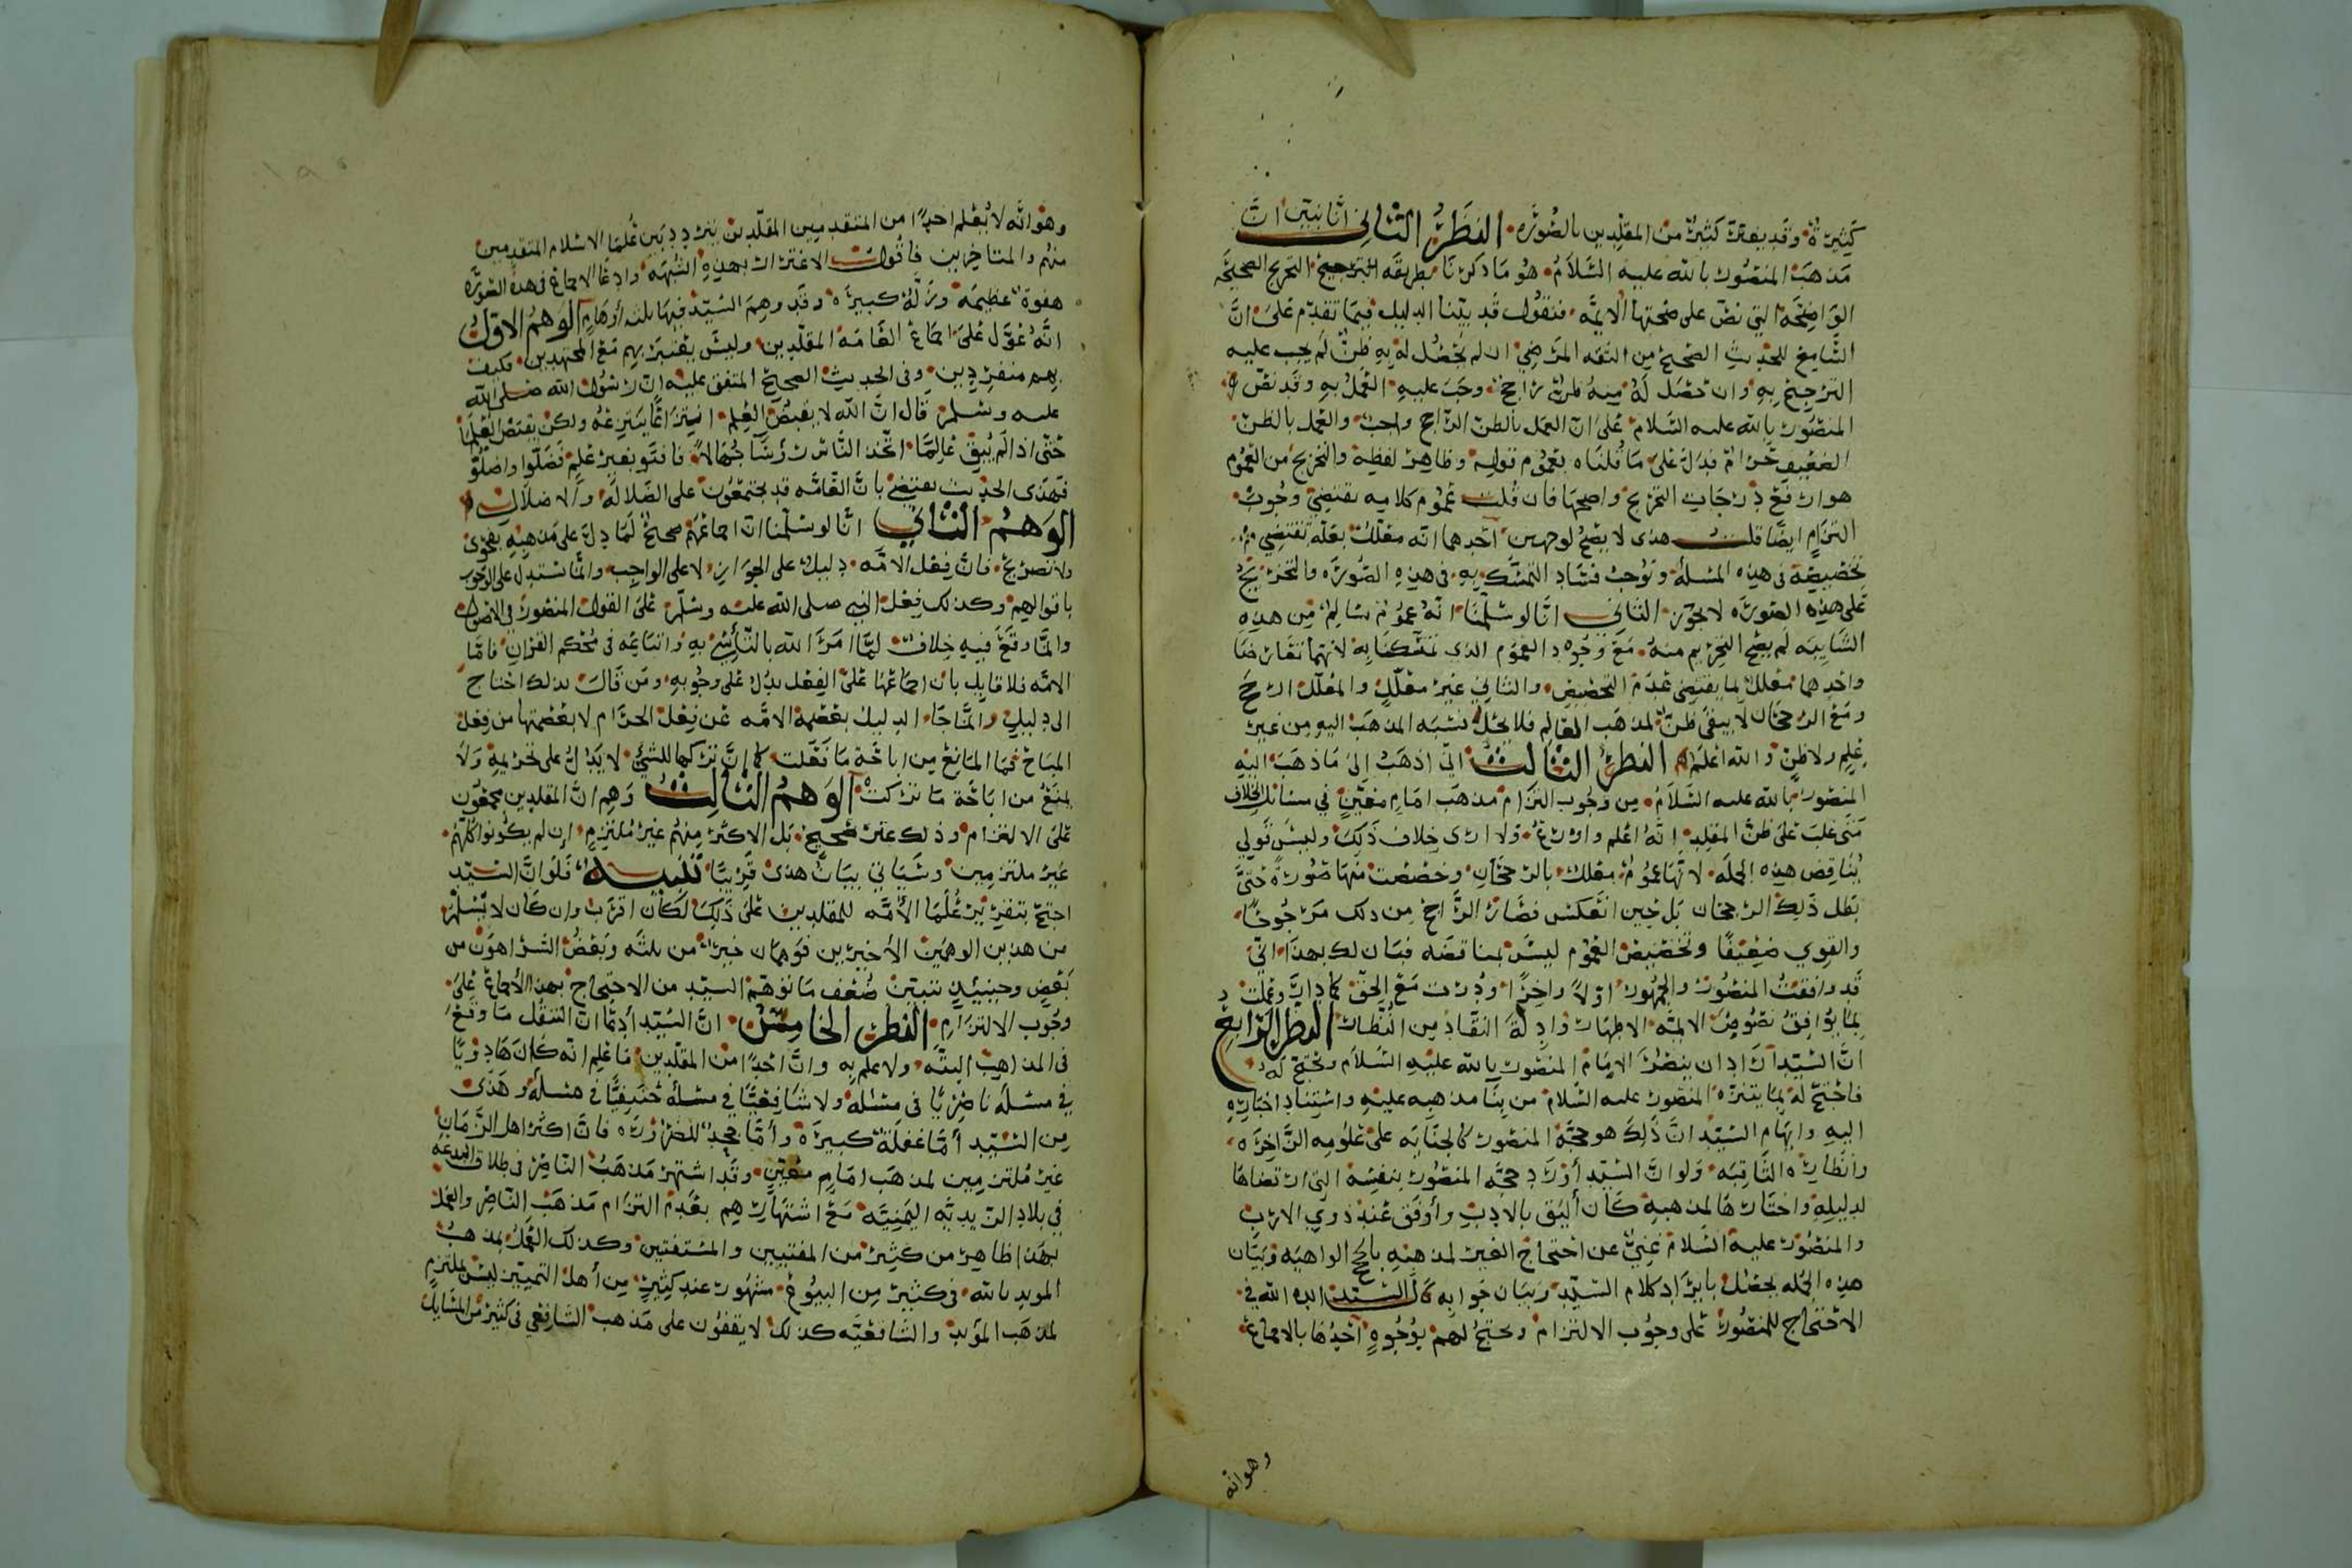 كثيرة وقد يعتر كثير من المقلدين بالصورة النظر الثاني انا نبين ان
مذهب المنصور بالله عليه السلام هو ما ذكرنا بطريقة الترجيح التخريج الصحيحه
الواضحة التي نص على صحتها الأئمة فنقول قد بينا الدليل فيما تقدم على ان
السامع للحديث الصحيح من الثقه المرضي ان لم يحصل له به ظن لم يجب عليه
الترجيح به وان حصل له منه ظن راجح وجب عليه العمل به وقد نص
المنصور بالله عليه السلام على ان العمل بالظن الراجح واجب والعمل بالظن
الضعيف حرام فدل على ما قلناه بعموم قوله وظاهر لفظه والتخريج من العموم
هو ارفع درجات التخريج واصحها فان قلت عموم كلامه يقتضي وجوب
التزام ايضا قلت هذى لا يصح لوجهين احدهما انه معلل بعلة تقتضي
تخصيصه في هذه المسئلة وتوجب فساد التمسك به في هذه الصورة والتخريج
على هذه الصورة لا يجوز الثاني انا لو سلمنا انه عموم سالم من هذه
الشايبه لم يصح التخريج منه مع وجود العموم الذي تمسكنا به لانهما تعارضا
واحدهما معلل بما يقتضي عدم التخصيص والثاني غير معلل والمعلل ارجح
ومع الرجحان لا يبقى ظن لمذهب العالم فلا يحل نسبه المذهب اليه من غير
علم ولا ظن والله اعلم النظر الثالث اني اذهب الى ما ذهب اليه
المنصور بالله عليه السلام من وجوب التزام مذهب امام معين في مسائل الخلاف
متى غلب على ظن المقلد انه اعلم واورع ولا ارى خلاف ذلك وليس قولي
يناقض هذه الجمله لانها عموم معلل بالرجحان وخصصت منها صورة حتى
بطل ذلك الرجحان بل حين انعكس فصار الراجح من ذلك مرجوحا
والقوي ضعيفا وتخصيص العموم ليس بمناقضه فبان لك بهذا اني
قد وافقت المنصور والجمهور اولا واخرا ودرت مع الحق كما دار وعملت
بما يوافق نصوص الائمه الاطهار وادلة النقاد من النظار النظر الرابع
ان السيد اراد ان ينصر الامام المنصور بالله عليه السلام ويحتج له
فاحتج له بما يتنزه المنصور عليه السلام من بنا مذهبه عليه واستناد اختياره
اليه وايهام السيد ان ذلك هو حجة المنصور كالجنايه على علومه الزاخره
وانظاره الثاقبه ولو ان السيد اورد حجة المنصور بنفسه التي ارتضاها
لدليله واختارها لمذهبه كان أليق بالادب وأوفق عند ذوي الارب
والمنصور عليه السلام غني عن احتجاج الغير لمذهبه بالحجج الواهيه وبيان
هذه الجمله يحصل بايراد كلام السيد وبيان جوابه قال السيد ايده الله في
الاحتجاج للمنصور على وجوب الالتزام ويحتج لهم بوجوه احدها بالاجماع
وهو انه
وهو انه لا يعلم احدا من المتقدمين المقلدين يتردد بين علما الاسلام المتقدمين
منهم والمتاخرين فاقول الاغترار بهذه الشبهه وادعا الاجماع في هذه الصورة
هفوة عظيمة وزلة كبيرة وقد وهم السيد فيها ثلثه أوهام الوهم الاول
انه عول على اجماع العامة المقلدين وليس يعتبر بهم مع المجتهدين فكيف
بهم منفردين وفي الحديث الصحيح المتفق عليه ان رسول الله صلى الله
عليه وسلم قال ان الله لا يقبض العلم انتزاعا ينتزعه ولكن يقبض العلما
حتى اذا لم يبق عالما اتخذ الناس رؤسا جهالا فافتوا بغير علم فضلوا واضلوا
فهذى الحديث يقتضي بان العامه قد يجتمعون على الضلالة والاضلال
الوهم الثاني انا لو سلمنا ان اجماعهم صحيح لما دل على مذهبه بفحوى
ولا تصريح فان فعل الامه دليل على الجواز لا على الواجب وانما نستدل على الوجوب
باقوالهم وكذلك فعل النبي صلى الله عليه وسلم على القول المنصور في الاصول
وانما وقع فيه خلاف لما امر الله بالتأسي به واتباعه في محكم القران فاما
الامه فلا قايل بان اجماعها على الفعل يدل على وجوبه ومن قال بذلك احتاج
الى دليل وانما جا الدليل بعصمة الامه عن فعل الحرام لا بعصمتها من فعل
المباح فما المانع من اباحة ما فعلت كما ان تركها للشي لا يدل على تحريمه ولا
يمنع من اباحة ما تركت الوهم الثالث وهم ان المقلدين مجمعون
على الالتزام وذلك غير صحيح بل الاكثر منهم غير ملتزم ان لم يكونوا كلهم
غير ملتزمين وسياتي بيان هذى قريبا تنبيه فلو ان السيد
احتج بتقرير علما الأمه للمقلدين على ذلك لكان اقرب وان كان لا يسلم
من هذين الوهمين الأخيرين فوهمان خير من ثلثه وبعض الشر اهون من
بعض وحينئذ نبين ضعف ما توهم السيد من الاحتجاج بهذا الأجماع على
وجوب الالتزام النظر الخامس ان السيد ادعا ان التنقل ما وقع
في المذاهب البته ولا علم به وان احدا من المقلدين فاعلم انه كان هادويا
في مسئلة ناصريا في مسئله ولا شافعيا في مسئلة حنفيا في مسئله وهذى
من السيد أما غفلة كبيرة وأما جحد للضرورة فان اكثر اهل الزمان
غير ملتزمين لمذهب امام معين وقد اشتهر مذهب الناصر في طلاق البدعه
في بلاد الزيديه اليمنيه مع اشتهارهم بعدم التزام مذهب الناصر والعمل
بهذا ظاهر من كثير من المفتيين والمستفتين وكذلك العمل بمذهب
المويد بالله في كثير من البيوع مشهور عند كثير من أهل التمييز ليس بملتزم
لمذهب المؤيد والشافعيه كذلك لا يقفون على مذهب الشافعي في كثير من المسايل